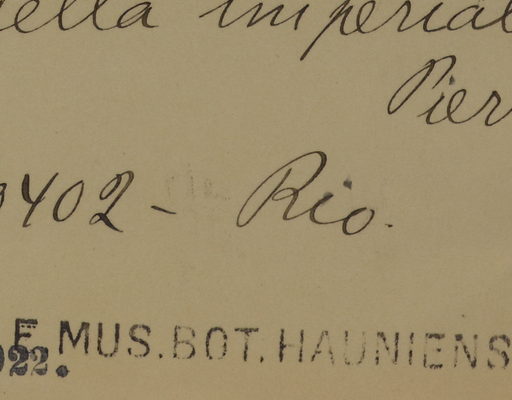 ella imperial
Pier
402 - Rio.
E MUS. BOT. HAUNIENS
922.